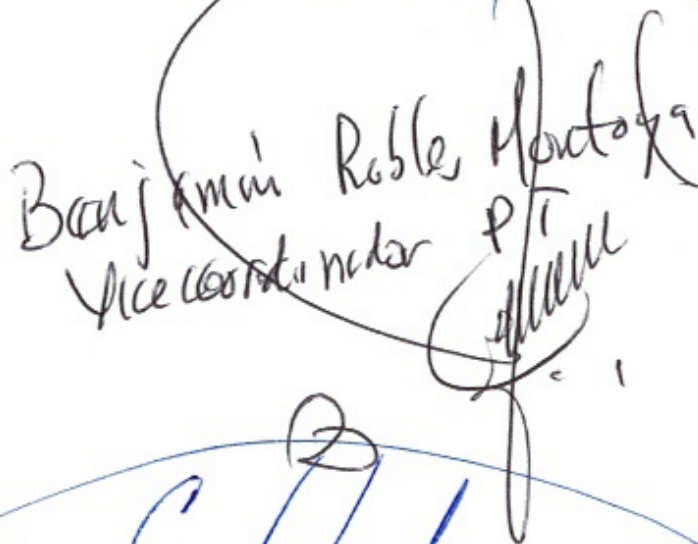 Benjamín Robles Montoya
Vicecoordinador PT